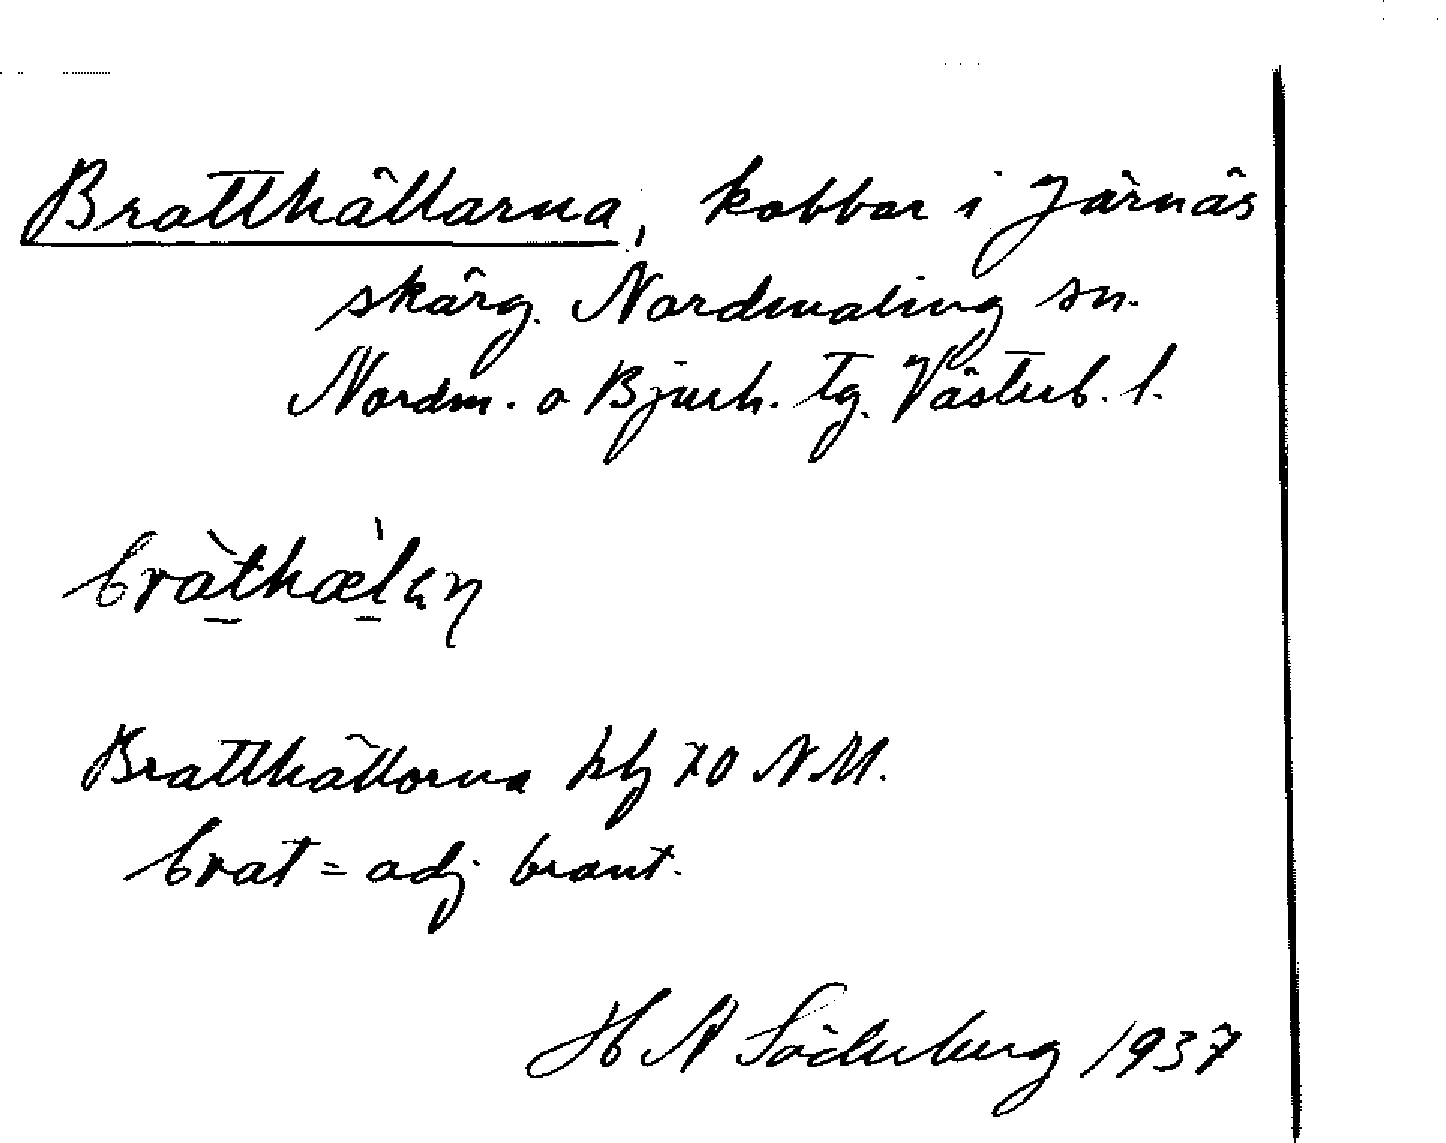 Bratthällarna, kobbar i Järnäs
skärg. Nordmaling sn.
Nordm. o Bjurh. tg. Västerb. l.
bràthæ̀lan
Bratthällorna kbl 70 NM.
brat = adj brant.
H A Söderberg 1937